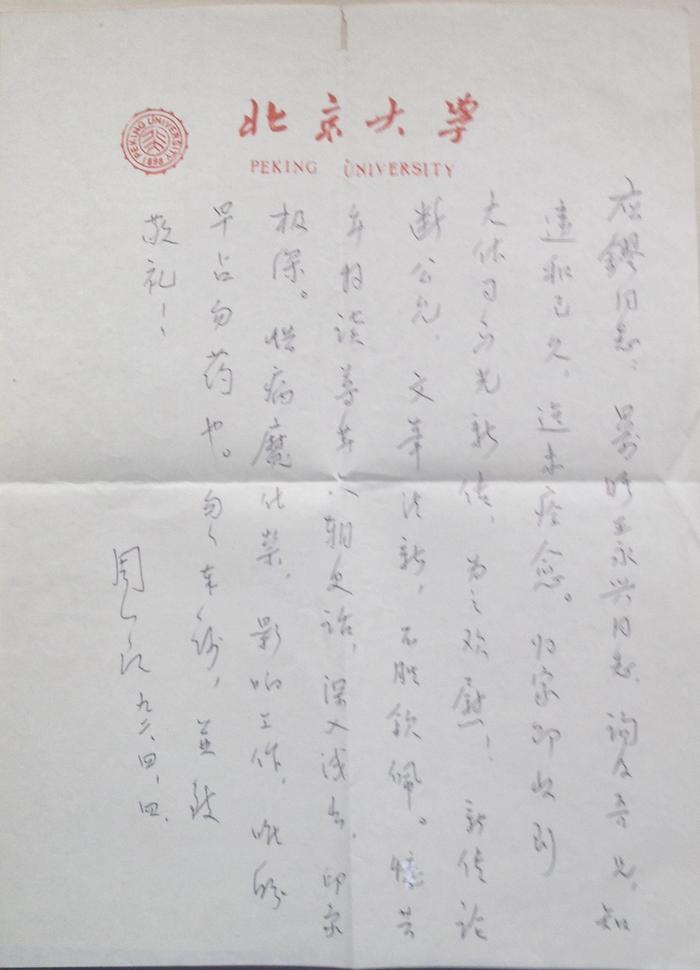 北京大学
PEKING UNIVERSITY
PEKING UNIVERSITY 1898
应鏐同志：晤王永兴同志，询及吾兄，知
违和已久，迄未痊愈。归家即收到
大作司马光新传，为之欢慰！新传论
断公允，文笔清新，不胜钦佩。忆昔
年拜读尊著六朝史话，深入浅出，印象
极深。惜病魔作祟，影响工作，唯盼
早占勿药也。匆匆奉复，并致
敬礼！
周一良 九二、四、四、